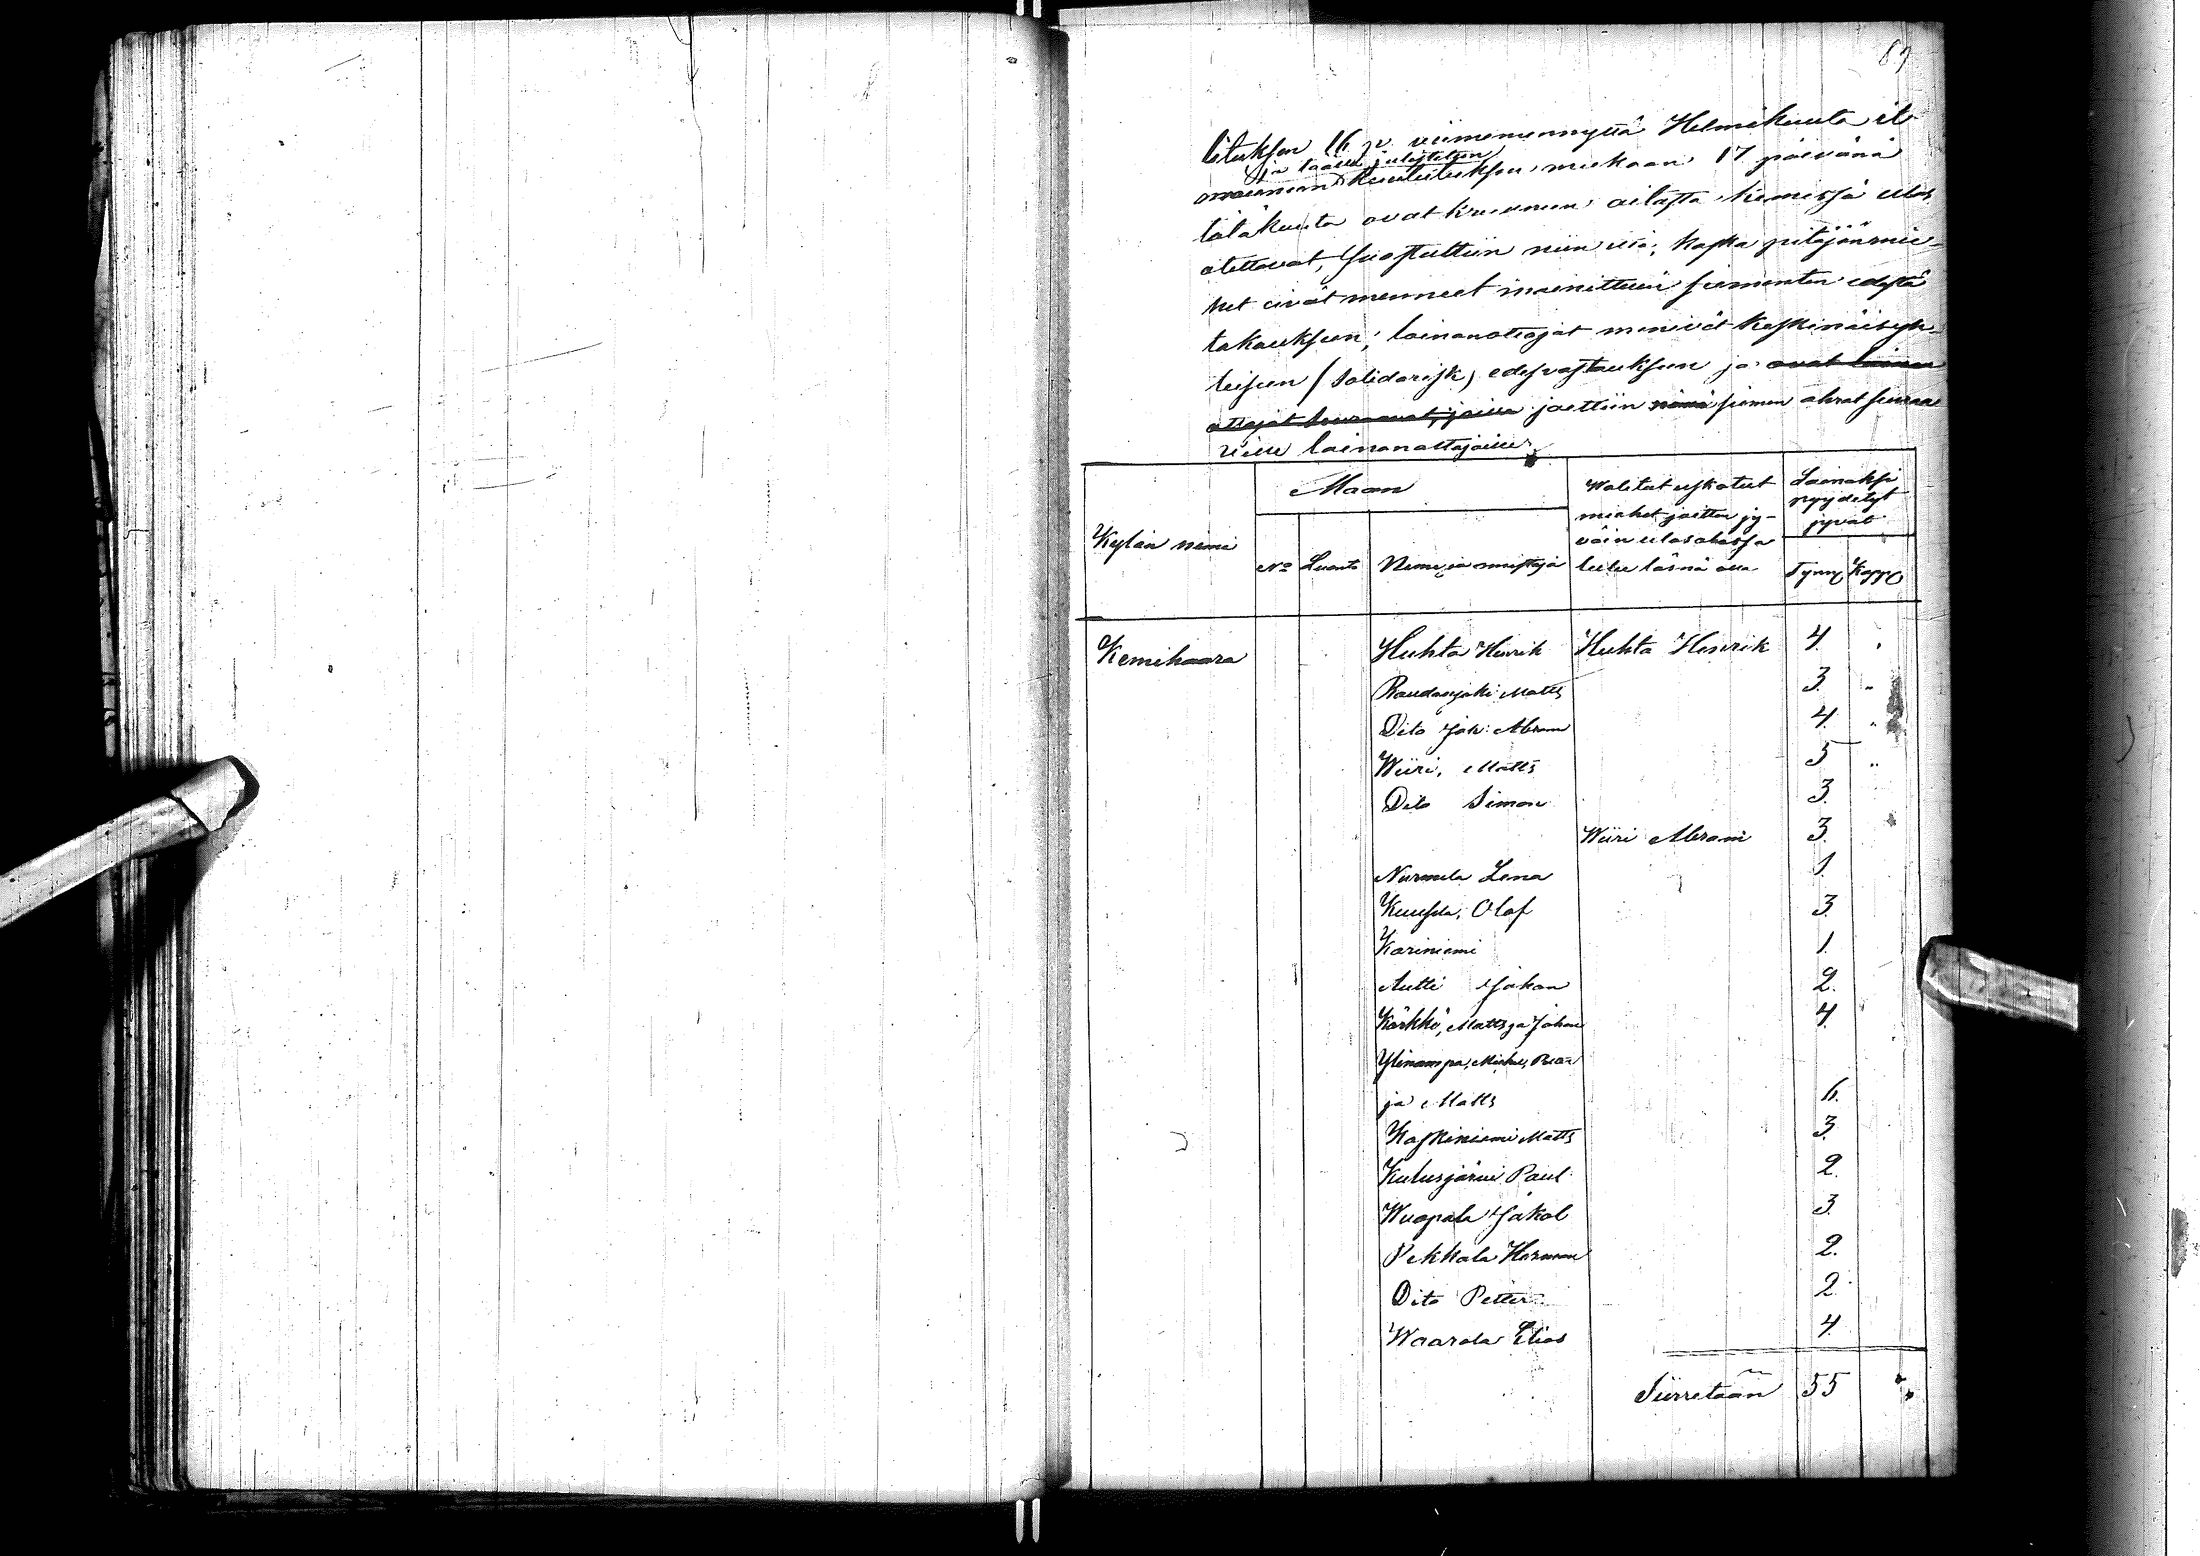 89
lituksen 16 p. viimemennyttä Helmikuuta it
ja täällä julistetun
omaisen kuulutuksen mukaan 17 päivänä
tätäkuuta ovat kruunun aitasta Kemissä ulos
otettavat, suostuttiin niin että, koska pitäjänmie-
het eivät menneet mainittuin siementen edestä
takaukseen; lainanottajat menivät keskinäisyh-
teiseen (solidarisk) edesvastaukseen ja ovat lainan
ottajat seuraavat, joille jaettiin nämä siemen ohrat seuraa
ville lainanottajoille
Kylän nimi
Maan
No
Luonto
Nimi ja omistaja
Walitut uskotut
miehet joitten jy-
väin ulosotossa
tulee läsnä olla
Lainaksi
pyydetyt
jyvät
Tynny
Kapp
Kemihaara Huhta Henrik Huhta Henrik 4.
Raudanjoki Matts 3. "
Dito Joh: Abram 4. "
Wiiri, Matts 5 "
Dito Simon 3.
Wiiri Abram 3.
Nurmela Lena 1.
Kuusela, Olof 3.
Kariniemi 1.
Autti Johan 2.
Kärkkö, Matts ja Johan 4.
Ylinampa, Mickel,
ja Matts 6.
Koskiniemi Matts 3.
Kulusjärvi Paul 2.
Wuopala Jakob 3.
Pekkala Herman 2.
Dito Petter 2.
Waarala Elias 4.
Siirretään 55 "